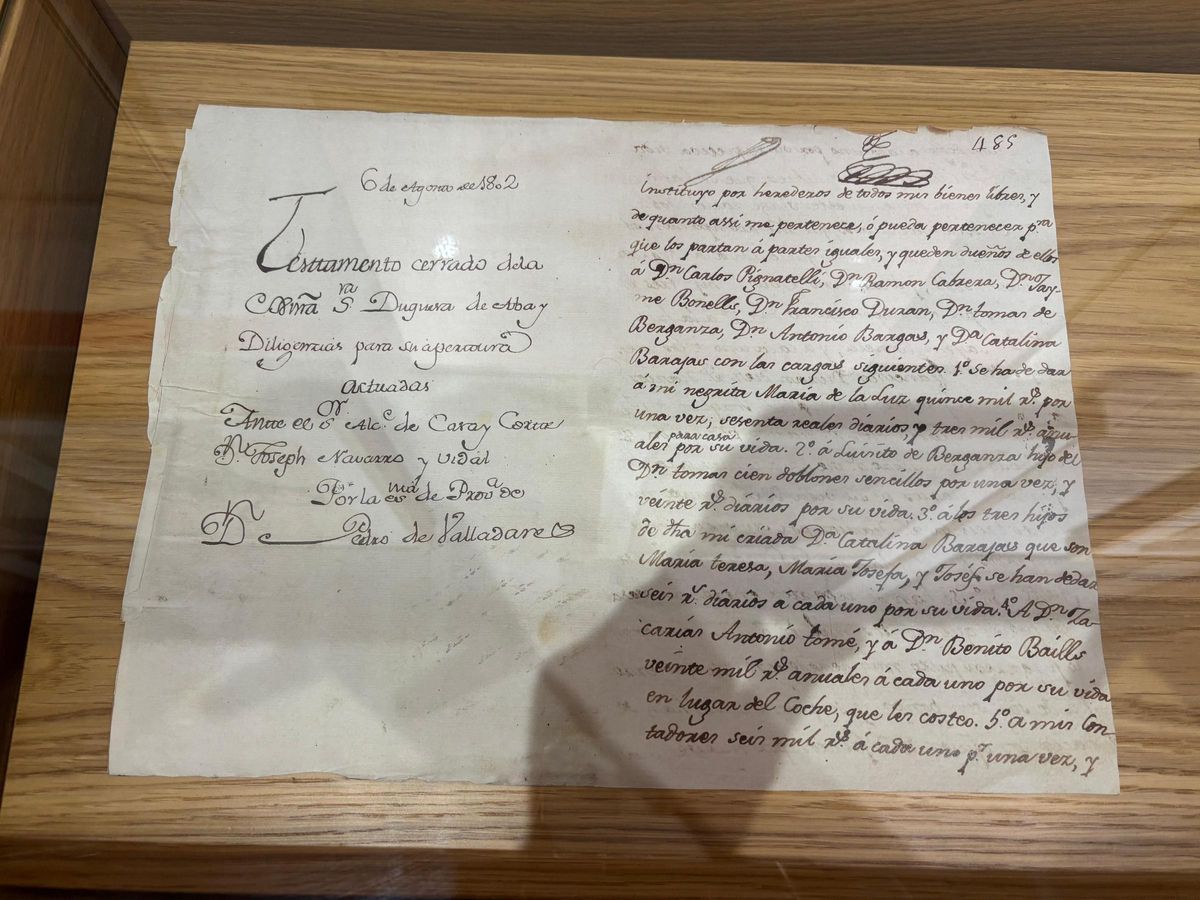 6 de Agosto de 1802
Testtamento cerrado dela
Exma Sra Duquesa de Alba y
Diligencias para su apertura
actuadas
Ante el Sr. Alc.e de Casa y Corte
Dn. Joseph Navarro y Vidal
Por la esna de Prova de
Dn Pedro de Valladares
485
instituyo por herederos de todos mis bienes libres, y
de quanto assi me pertenece, ó pueda pertenecer pra
que los partan á partes iguales, y queden dueños de ellos
á Dn Carlos Pignatelli, Dn Ramon Cabrera, Dn Jay-
me Bonells, Dn Francisco Duran, Dn tomas de
Berganza, Dn Antonio Bargas, y Da Catalina
Barajas con las cargas siguientes. 1º. Se ha de dar
á mi negrita María de la Luz quince mil rs. por
una vez; sesenta reales diarios, y tres mil rs. anu-
para casa
ales por su vida. 2º. á Luisito de Berganza hijo del
Dn tomas cien doblones sencillos por una vez, y
veinte rs. diarios por su vida. 3º. á los tres hijos
de dha mi criada Da Catalina Barajas que son
María teresa, María Josefa, y Joséf se han de dar
seis rs. diarios á cada uno por su vida. 4º. A Dn Za-
carías Antonio tomé, y á Dn Benito Baills
veinte mil rs. anuales á cada uno por su vida
en lugar del Coche, que les costeo. 5º. a mis Con-
tadores seis mil rs. á cada uno pr. una vez, y